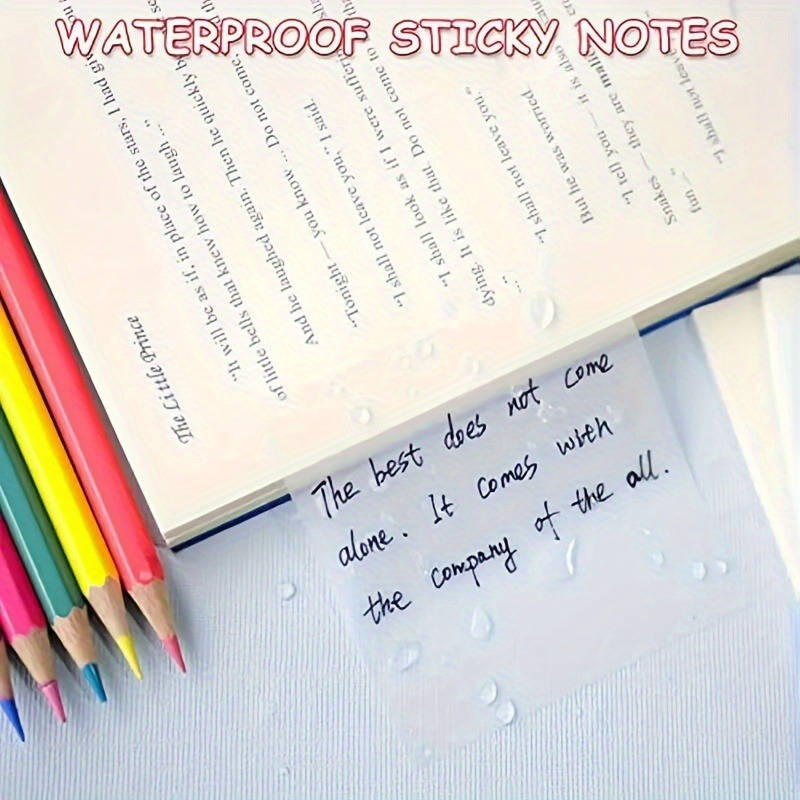 WATERPROOF STICKY NOTES
The Little Prince
"It will be as if, in place of the stars, I had giv
of little bells that knew how to laugh ..."
And he laughed again. Then he quickly b
"Tonight — you know ... Do not come
"I shall not leave you," I said.
"I shall look as if I were sufferin
dying. It is like that. Do not come to th
"I shall not leave you."
But he was worried.
"I tell you — it is also
Snakes — they are mali
fun
"I shall not leave
The best does not come
alone. It comes with
the company of the all.